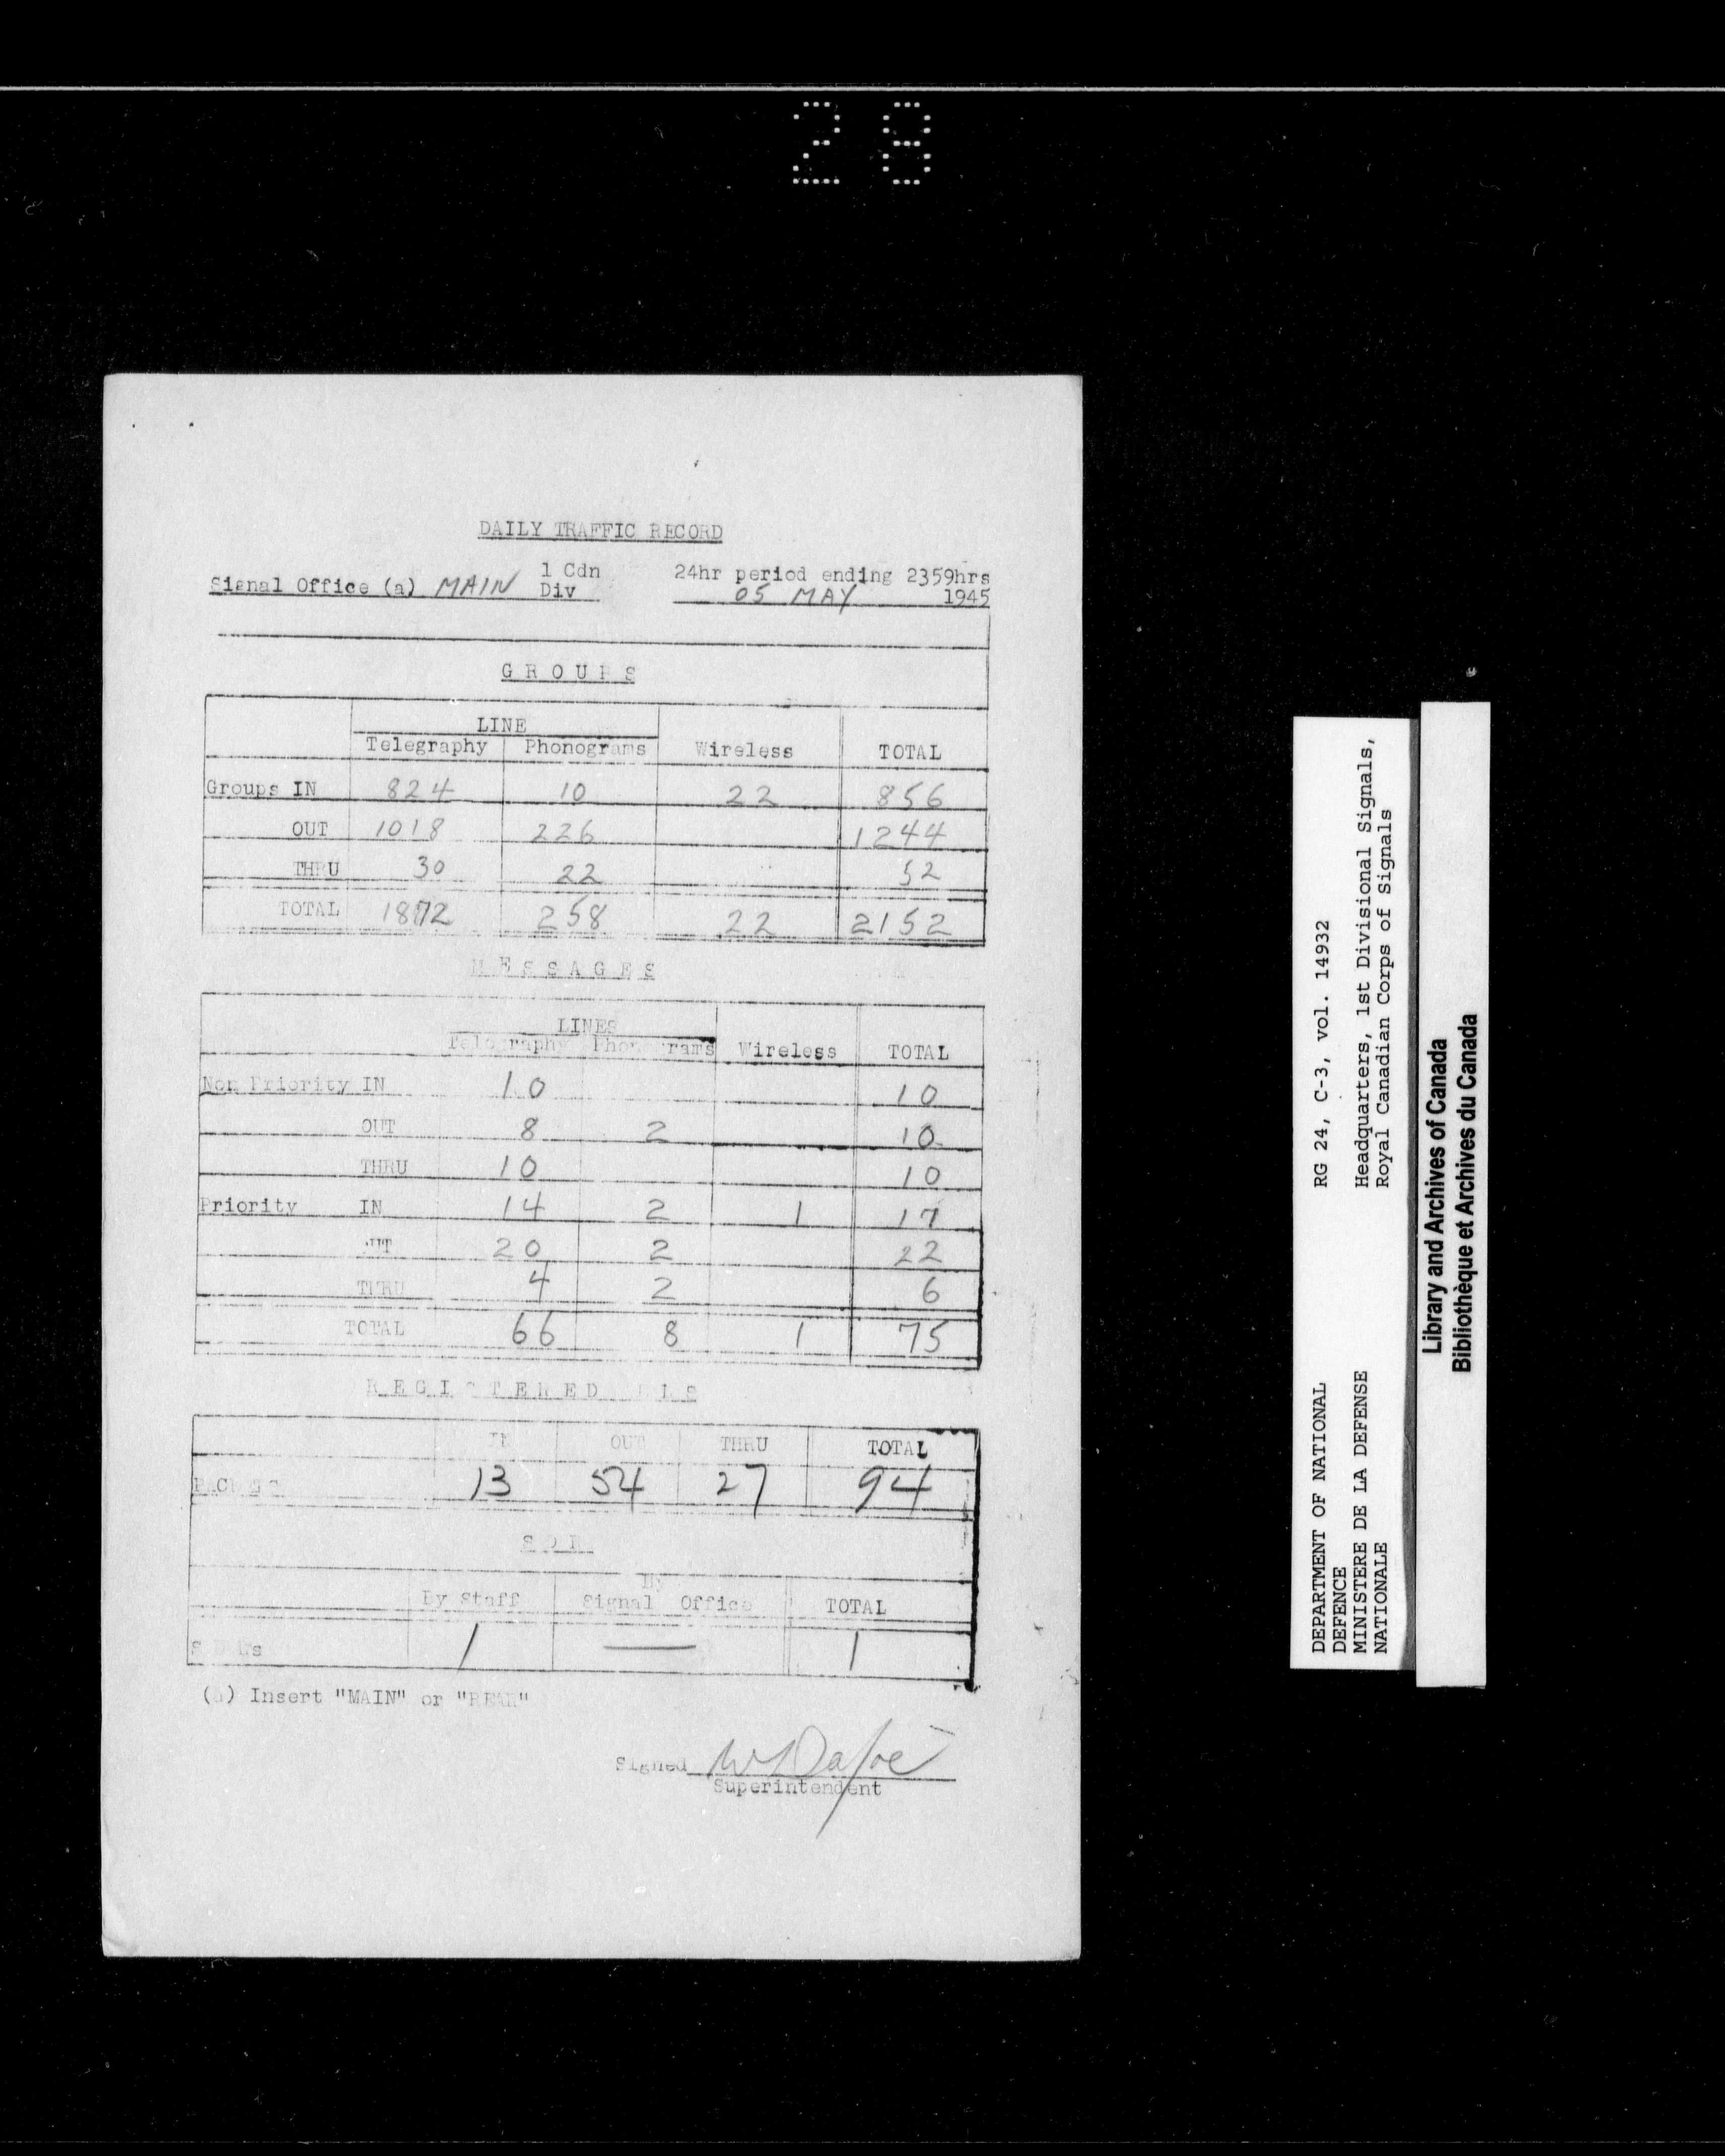 28
DAILY TRAFFIC RECORD
Signal Office (a) MAIN 1 Cdn Div
24hr period ending 2359hrs
05 MAY 1945
GROUPS
LINE
Telegraphy Phonograms Wireless TOTAL
Groups IN 824 10 22 856
OUT 1018 226 1244
THRU 30 22 52
TOTAL 1872 258 22 2152
MESSAGES
LINES
Telegraphy Phonograms Wireless TOTAL
Non Priority IN 10 10
OUT 8 2 10
THRU 10 10
Priority IN 14 2 1 17
OUT 20 2 22
THRU 4 2 6
TOTAL 66 8 1 75
REGISTERED
IN OUT THRU TOTAL
13 54 27 94
By
By Staff Signal Office TOTAL
1 — 1
(a) Insert "MAIN" or "REAR"
Signed
Superintendent
DEPARTMENT OF NATIONAL DEFENCE
MINISTERE DE LA DEFENSE NATIONALE
RG 24, C-3, vol. 14932
Headquarters, 1st Divisional Signals,
Royal Canadian Corps of Signals
Library and Archives of Canada
Bibliothèque et Archives du Canada